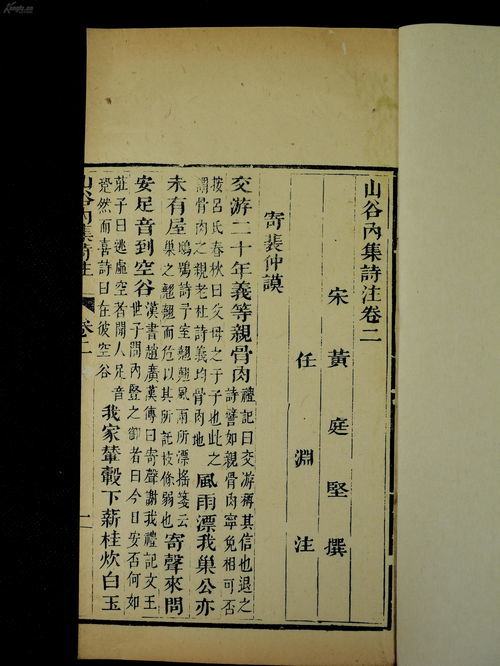 山谷內集詩注卷二
宋黃庭堅撰
任淵注
寄裴仲謨
交游二十年義等親骨肉
禮記曰交游稱其信也退之
詩譬如親骨肉寧免相可否
按呂氏春秋曰父母之于子也此之
謂骨肉之親老杜詩義均骨肉地
風雨漂我巢公亦
未有屋
鴟鴞詩予室翹翹風雨所漂搖箋云
巢之翹翹而危以其所託枝條弱也
寄聲來問
安足音到空谷
漢書趙廣漢傳曰寄聲謝我禮記文王
世子問內豎之御者曰今日安否何如
莊子曰逃虛空者聞人足音
跫然而喜詩曰在彼空谷
我家輦轂下薪桂炊白玉
山谷內集詩注
卷二
一